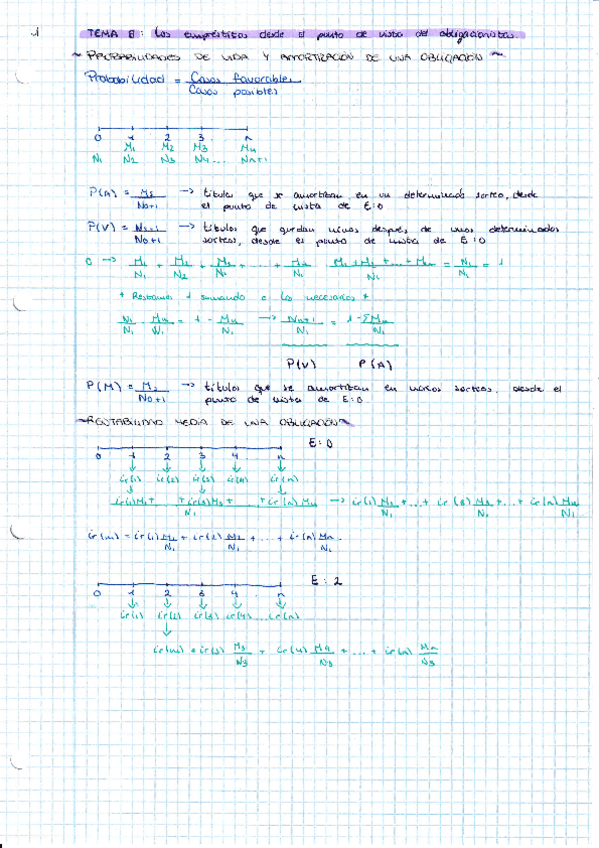 1
TEMA 8: Los empréstitos desde el punto de vista del obligacionista.
~ PROBABILIDADES DE VIDA Y AMORTIZACIÓN DE UNA OBLIGACIÓN ~
Probabilidad = Casos favorables / Casos posibles
0 1 2 3 n
M1 M2 M3 Mn
N1 N2 N3 N4 ... Nn+1
P(A) = Ms / N0+1 -> títulos que se amortizan en un determinado sorteo, desde
el punto de vista de E:0
P(V) = Ns+1 / N0+1 -> títulos que quedan vivos después de unos determinados
sorteos, desde el punto de vista de E:0
0 -> M1/N1 + M2/N2 + M3/N1 + ... + Mn/N1 M1+M2+...+Mn / N1 = N1/N1 = 1
* Restamos 1 sumando o los necesarios *
N1/N1 - Mn/N1 = 1 - Mn/N1 -> Nn+1/N1 = 1-ΣMn/N1
P(V) P(A)
P(M) = Ms / N0+1 -> títulos que se amortizan en varios sorteos, desde el
punto de vista de E:0.
~RENTABILIDAD MEDIA DE UNA OBLIGACIÓN~
E:0
0 1 2 3 4 n
ir(1) ir(2) ir(3) ir(4) ir(n)
ir(1)M1 + ir(2)M2 + ... + ir(n)Mn / N1 -> ir(1) M1/N1 + ... + ir(s) Ms/N1 + ... + ir(n) Mn/N1
ir(m) = ir(1) M1/N1 + ir(2) M2/N1 + ... + ir(n) Mn/N1.
E: 2
0 1 2 3 4 n
ir(1) ir(2) ir(3) ir(4) ... ir(n)
ir(m) = ir(3) M3/N3 + ir(4) M4/N3 + ... + ir(n) Mn/N3